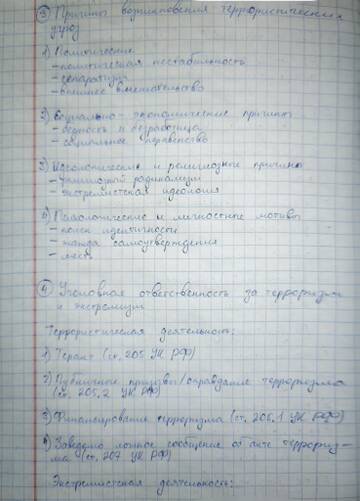 ③ Причины возникновения террористических
угроз
1) Политические
- политическая нестабильность
- сепаратизм
- внешнее вмешательство
2) Социально-экономические причины
- бедность и безработица
- социальное неравенство
3) Идеологические и религиозные причины
- религиозный радикализм
- экстремистская идеология
4) Психологические и личностные мотивы
- поиск идентичности
- жажда самоутверждения
- месть
④ Уголовная ответственность за терроризм
и экстремизм
Террористическая деятельность:
1) Теракт (ст. 205 УК РФ)
2) Публичные призывы/оправдание терроризма
(ст. 205.2 УК РФ)
3) Финансирование терроризма (ст. 205.1 УК РФ)
4) Заведомо ложное сообщение об акте террориз-
ма (ст. 207 УК РФ)
Экстремистская деятельность: